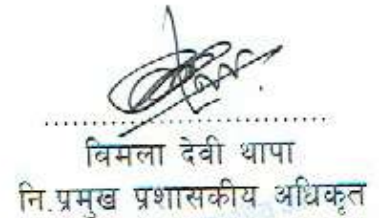 विमला देवी थापा
नि.प्रमुख प्रशासकीय अधिकृत